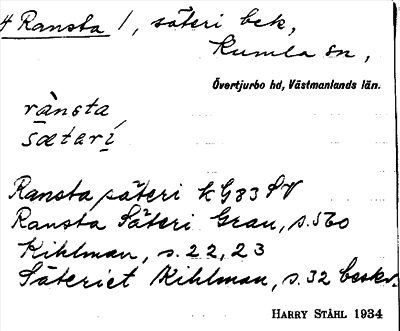 4 Ransta /, säteri bek,
Kumla sn,
Övertjurbo hd, Västmanlands län.
rànsta
sætarí
Ransta säteri k G83 SV
Ransta Säteri Grau, s. 560
Kihlman, s. 22, 23
Säteriet Kihlman, s. 32 beskr.
HARRY STÅHL 1934